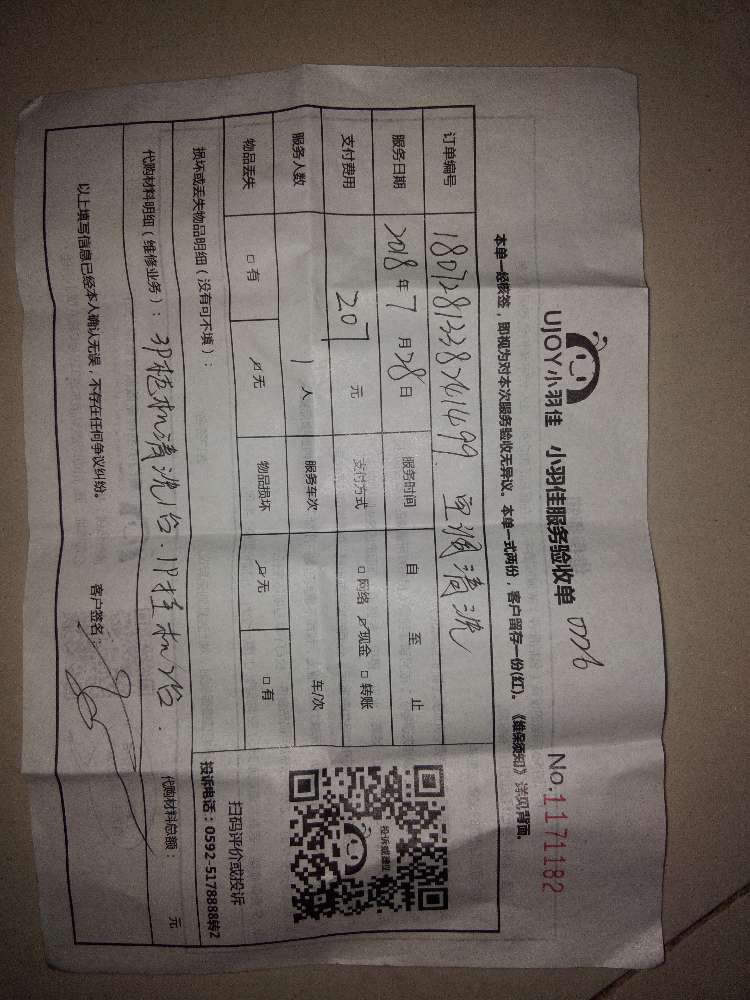 UJOY小羽佳 小羽佳服务验收单 No.1171182
本单一经核签，即视为对本次服务验收无异议。本单一式两份，客户留存一份(红)。《维保须知》详见背面。
订单编号
服务日期 2018 年 7 月 28 日 服务时间 自 至 止
支付费用 207 元 支付方式 □网络 ☑现金 □转账
服务人数 1 人 服务车次 车/次
物品丢失 □有 ☑无 物品损坏 ☑无 □有
损坏或丢失物品明细（没有可不填）：
代购材料明细（维修业务）： 代购材料总额： 元
以上填写信息已经本人确认无误，不存在任何争议纠纷。 客户签名：
扫码评价或投诉
投诉电话：0592-5178888转2